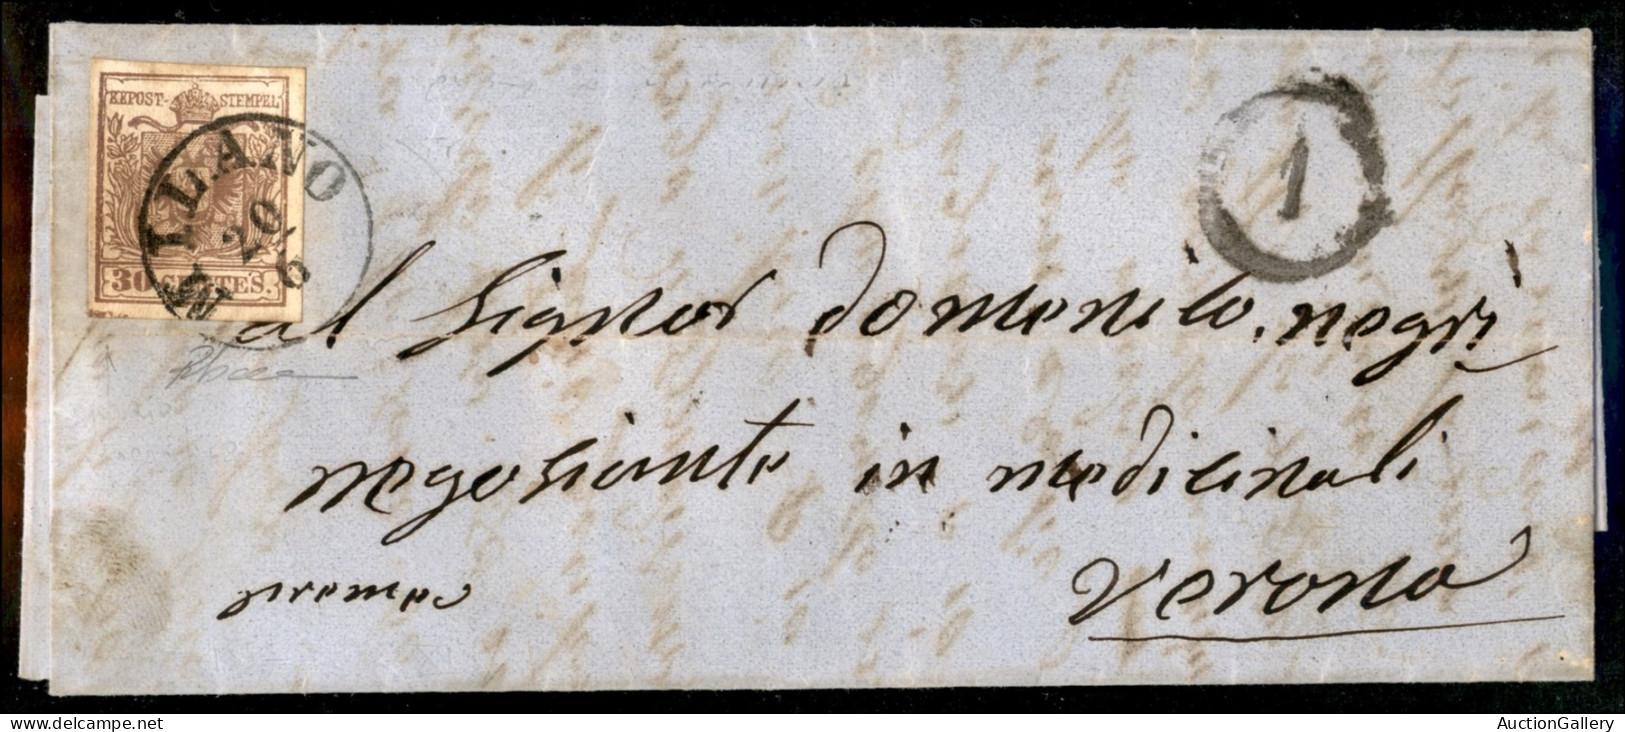 KKPOST-STEMPEL
30 CENTES.
MILANO
20
6
1
al Signor domenico negri
negosiante in medicinali
Verona
AuctionGallery